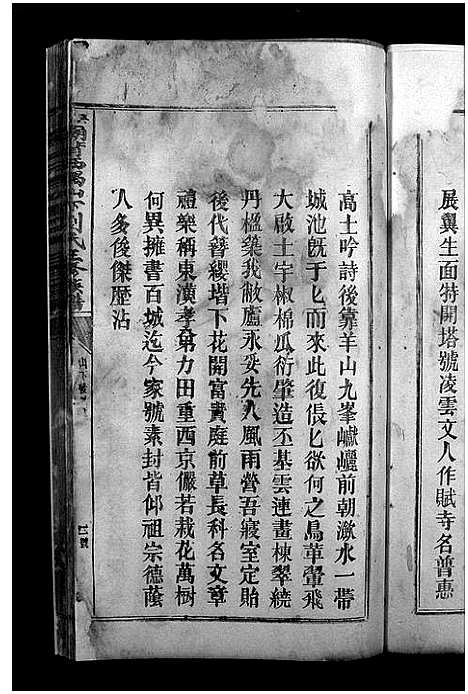 展翼生面特開塔號凌雲文人作賦寺名普惠
高士吟詩後靠羊山九峯巘𡾰前朝潋水一帶
城池旣于匕而來此復倀匕欲何之鳥革翬飛
大啟土宇椒棉瓜衍肇造丕基雲連畫棟翠繞
丹楹築我敝廬永妥先人風雨營吾寢室定貽
後代簪纓堦下花開富貴庭前草長科名文章
禮樂稱東漢孝弟力田重西京儼若栽花萬樹
何異擁書百城迄今家號素封皆仰祖宗德蔭
人多俊傑歷沾
劉氏